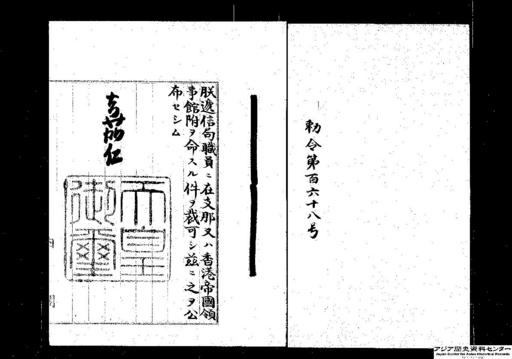 勅令第百六十八号
朕遞信局職員ニ在支那又ハ香港帝國領
事館附ヲ命スル件ヲ裁可シ茲ニ之ヲ公
布セシム
嘉仁
天皇
御璽
アジア歴史資料センター
Japan Center for Asian Historical Records